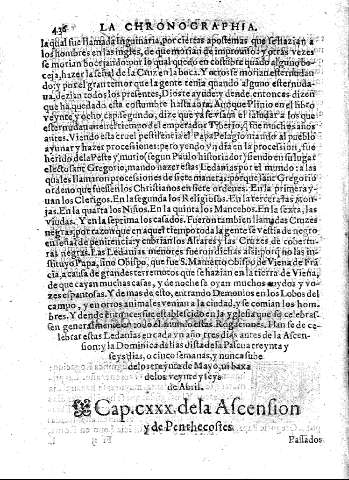 436 LA CHRONOGRAPHIA.
la qual fue llamada Inguinaria, por ciertas apostemas que se hazian a
los hombres en las ingles, de que morian de improuiso: y otras vezes
se morian bocezando: por lo qual quedo en costũbre quãdo alguno bo-
ceja, hazer la señal de la Cruz en la boca. Y otros se moriã esternudan
do: y por el gran temor que la gente tenia quando alguno esternuda-
ua, dezian todos los presentes, Dios te ayude: y dende entonces dizen
que ha quedado esta costumbre hasta aora. Aunque Plinio en el libro
veynte y ocho, cap. segundo, dize que ya se vsaua el saludar a los que
esternudauan en el tiempo del emperador Tyberio, q̃ fue muchos años
antes. Viendo esta cruel pestilencia el Papa Pelagio mandò al pueblo
ayunar y hazer processiones: pero yendo vn dia en la procession, fue
herido de la Peste y murio (segun Paulo historiador) siendo en su lugar
electo sanct Gregorio, mando hazer estas Ledanias por el mundo: a las
quales llamaron processiones de siete maneras: porque sanct Gregorio
ordeno que fuessen los Christianos en siete ordenes. En la primera y-
uan los Clerigos. En la segunda los Religiosos. En la tercera las Mon-
jas. En la quarta los Niños. En la quinta los Mancebos. En la sexta, las
viudas. Y en la septima los casados. Fueron tambien llamadas Cruzes
negras, por razon que en aquel tiempo toda la gente se vestia de negro
en señal de penitencia: y cubrian los Altares y las Cruzes de cobertu-
ras negras. Las Ledanias menores fueron dichas assi: porque las in-
stituyo Papa, sino Obispo, que fue S. Mamerto Obispo de Viena de Frã
cia, a causa de grandes terremotos que se hazian en la tierra de Viena,
de que cayan muchas casas, y de noche se oyan muchos ruydos y vo-
zes espantosas. Y de mas de esto, entrando Demonios en los Lobos del
campo, y en otros animales venian a la ciudad, y se comian los hom-
bres. Y dende entonces fue establescido en la yglesia que se celebras-
sen generalmente en todo el mundo estas Rogaciones. Han se de ce-
lebrar estas Ledanias en cada vn año, tres dias antes de la Ascen-
sion: y la Dominica de las dista de la Pascua treynta y
seys dias, o cinco semanas, y nunca sube
de los treynta de Mayo, ni baxa
de los veynte y seys
de Abril.
Cap. cxxx. de la Ascension
y de Penthecostes.
Passados